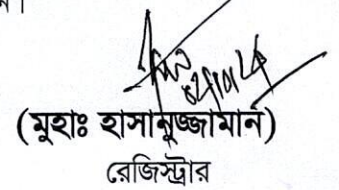 ন।
(মুহাঃ হাসানুজ্জামান)
রেজিস্ট্রার